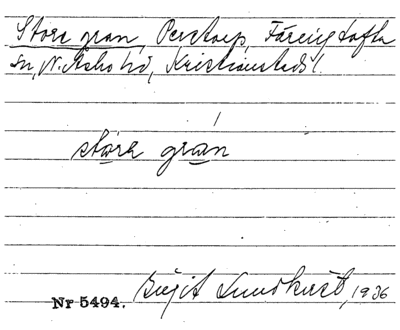 Stora gran, Perstorp, Färingtofta
sn, N. Åsbo hd, Kristianstads l.
stóra gran
Nr 5494. Birgit Lundkvist, 1936